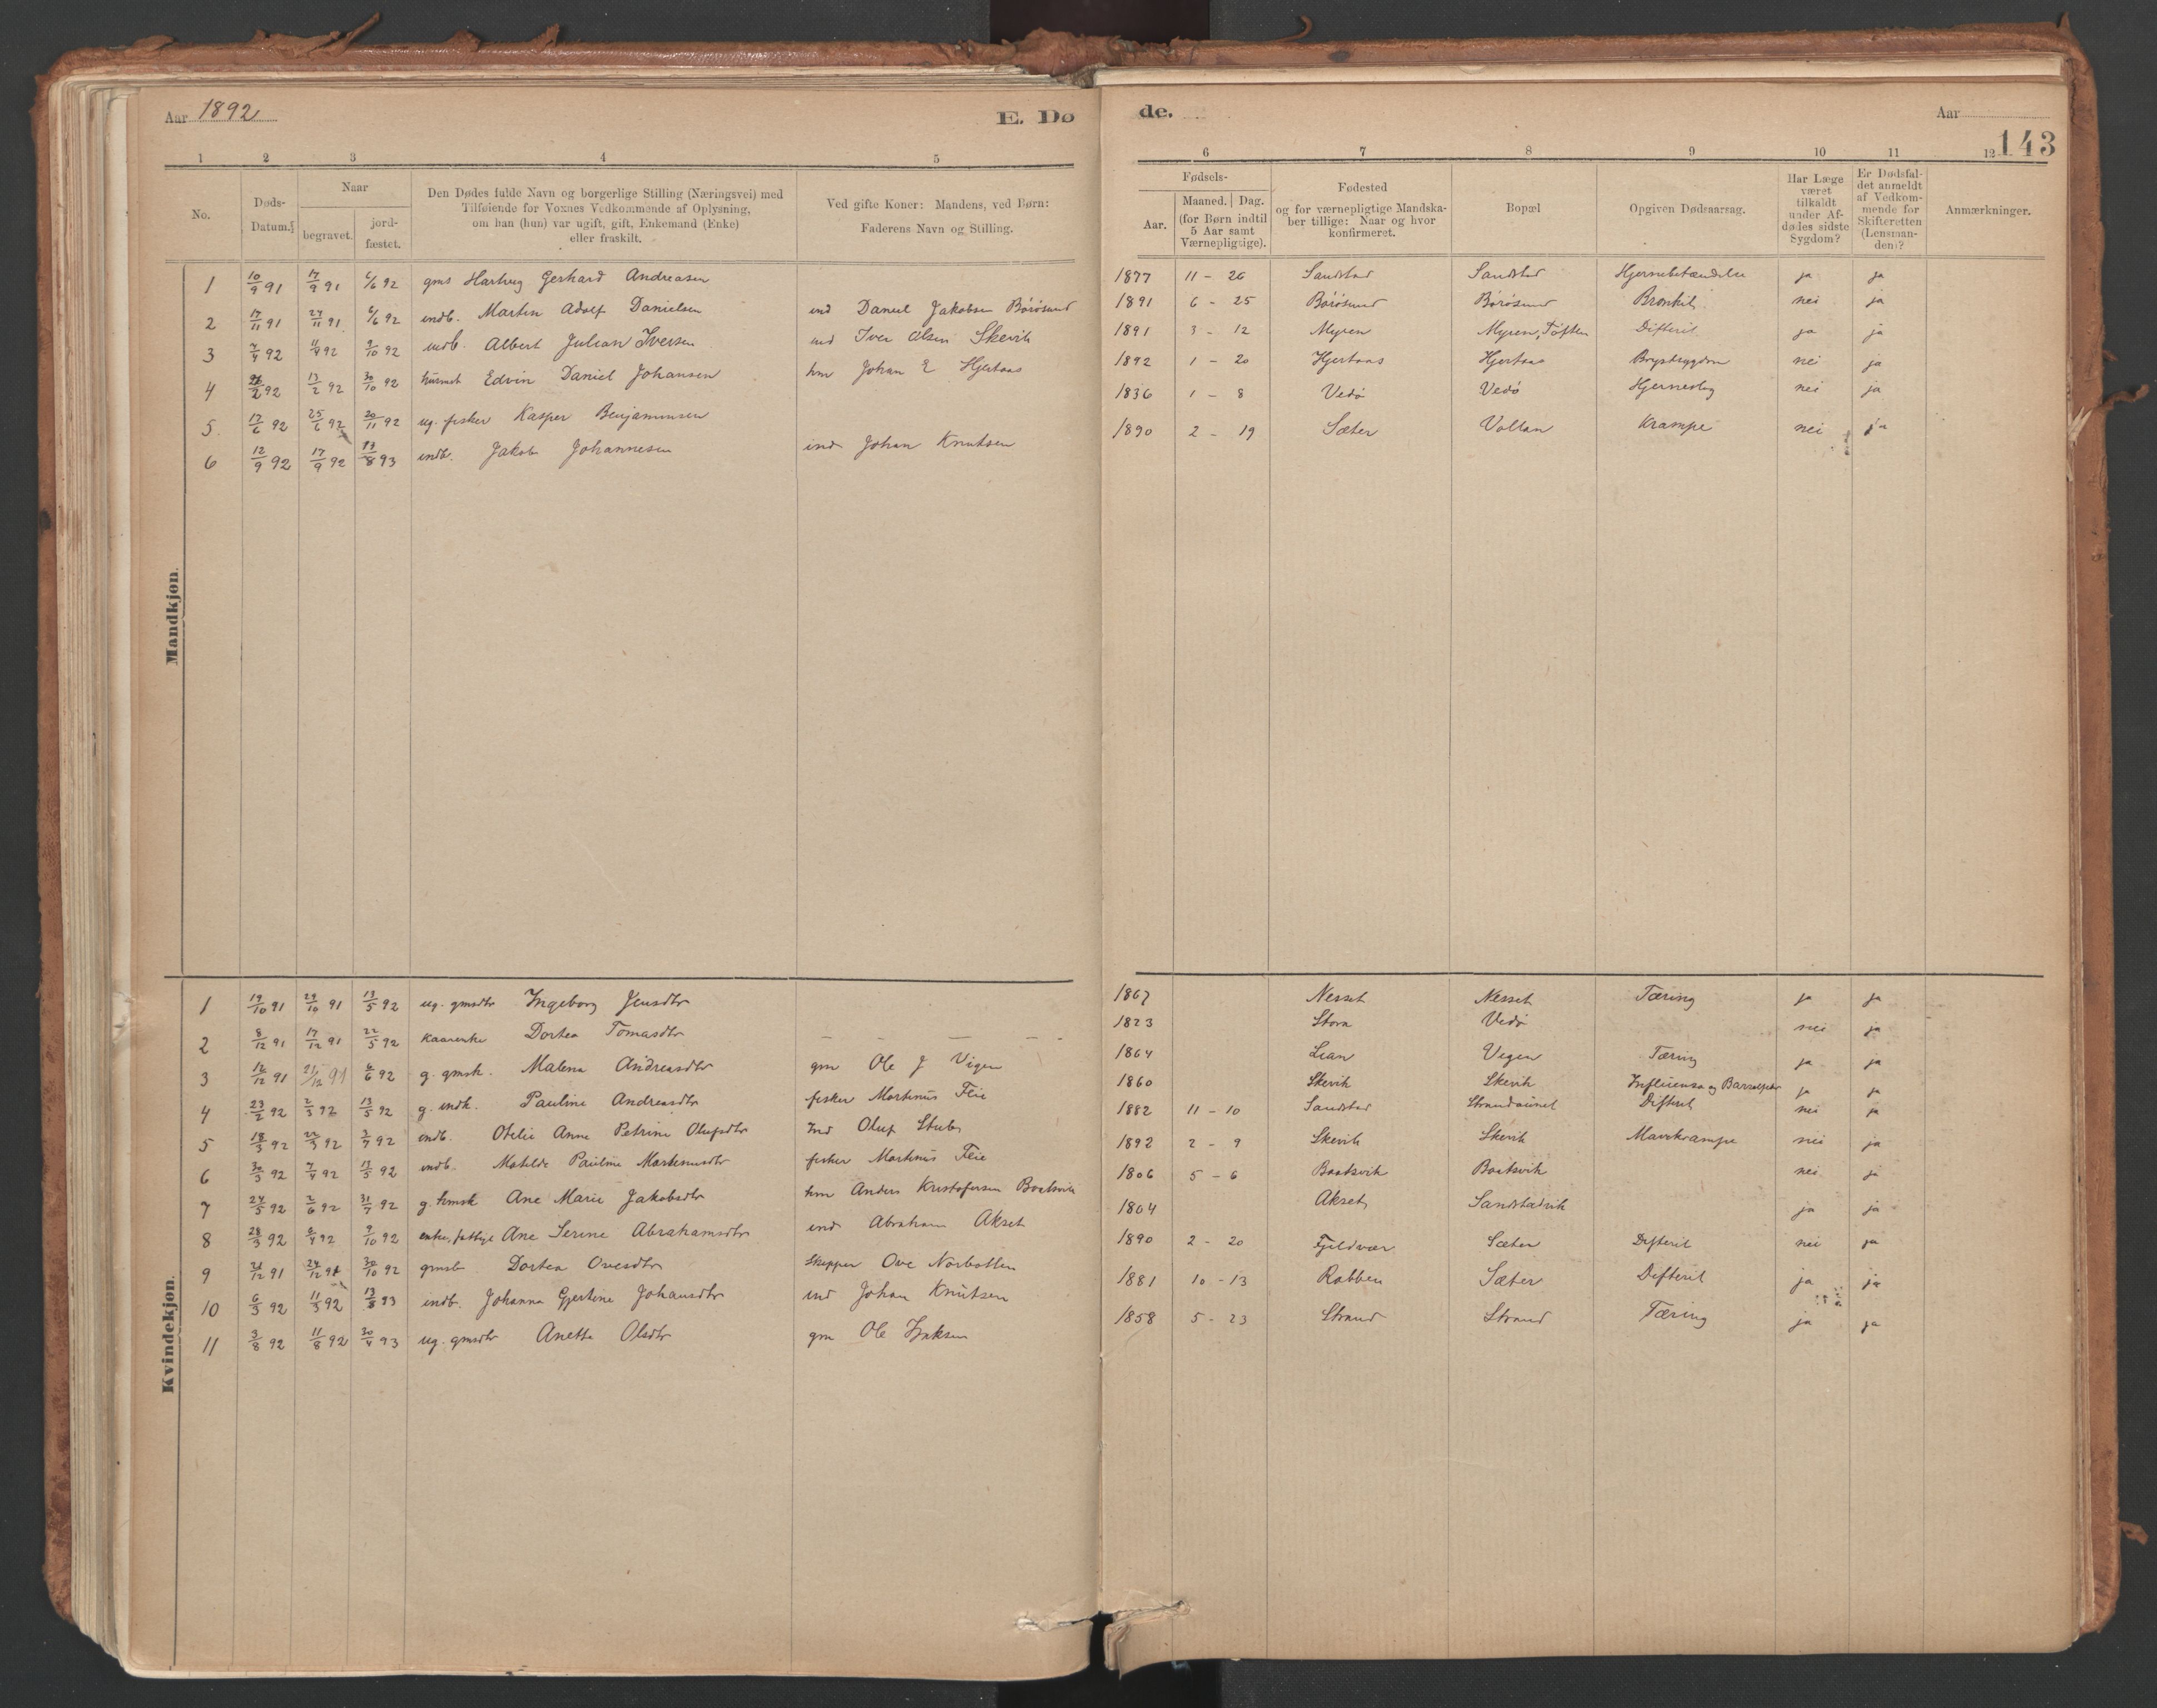 Aar 1892 E. Dø de. Aar
143
1 2 3 4 5 6 7 8 9 10 11 12
No.
Døds-Datum.
Naar begravet. jordfæstet.
Den Dødes fulde Navn og borgerlige Stilling (Næringsvei) med Tilføiende for Voxnes Vedkommende af Oplysning, om han (hun) var ugift, gift, Enkemand (Enke) eller fraskilt.
Ved gifte Koner: Mandens, ved Børn: Faderens Navn og Stilling.
Fødsels- Aar. Maaned. Dag. (for Børn indtil 5 Aar samt Værnepligtige).
Fødested og for værnepligtige Mandskaber tillige: Naar og hvor konfirmeret.
Bopæl
Opgiven Dødsaarsag.
Har Læge været tilkaldt under Afdødes sidste Sygdom?
Er Dødsfaldet anmeldt af Vedkommende for Skifteretten (Lensmanden)?
Anmærkninger.
Mandkjøn.
1 10/9 91 17/9 91 6/6 92 gms Hartvig Gerhard Andreasen 1877 11 - 26 Sandstad Sandstad Hjernebetændelse ja ja
2 17/11 91 24/11 91 6/6 92 indb. Martin Adolf Danielsen ind Daniel Jakobsen Börösund 1891 6 - 25 Börösund Börösund Bronkit nei ja
3 7/4 92 11/4 92 9/10 92 indb. Albert Julian Iversen ind Iver Olsen Skevik 1891 3 - 12 Myren Myren, Töften Difterit ja ja
4 2/2 92 13/2 92 30/10 92 Edvin Daniel Johansen hm Johan E Hjertaas 1892 1 - 20 Hjertaas Hjertaas Brystsygdom nei ja
5. 17/6 92 25/6 92 20/11 92 ug. fisker Kasper Benjaminsen 1836 1 - 8 Vedö Vedö Hjerneslag nei ja
6 12/9 92 17/9 92 13/8 93 indb. Jakob Johannesen ind Johan Knutsen 1890 2 - 19 Sæter Voltan Krampe nei ja
Kvindekjøn.
1 19/10 91 29/10 91 13/5 92 ug. gmsdtr Ingeborg Jensdtr 1867 Nesset Nesset Tæring ja ja
2 8/12 91 17/12 91 22/5 92 kaarenke Dortea Tomasdtr - - - - - 1823 Storn Vedö nei ja
3 16/12 91 21/12 91 6/6 92 g. gmsk. Malena Andreasdtr gm Ole J Vigen 1864 Lian Vegen Tæring ja ja
4 23/2 92 2/3 92 13/5 92 g. indk. Pauline Andreasdtr fisker Martinus Feie 1860 Skevik Skevik Influensa og Barselfeber ja ja
5 18/3 92 22/3 92 3/7 92 indb. Otelie Anne Petrine Olufsdtr Ind Oluf Stub 1882 11 - 10 Sandstad Strandaunet Difterit nei ja
6 30/3 92 7/4 92 13/5 92 indb. Matilde Pauline Martinusdtr fisker Martinus Feie 1892 2 - 9 Skevik Skevik Mavekrampe nei ja
7 24/5 92 2/6 92 31/7 92 g. hmsk Ane Marie Jakobsdtr hm Anders Kristofersen Baatsvik 1806 5 - 6 Baatsvik Baatsvik nei ja
8 28/3 92 6/4 92 9/10 92 enke, fattige Ane Serine Abrahamsdtr ind Abraham Akset 1804 Akset Sandstadvik ja ja
9 21/12 91 24/12 91 30/10 92 gmsb. Dortea Ovesdtr Skipper Ove Norbotten 1890 2 - 20 Fjeldvær Sæter Difterit nei ja
10 6/3 92 11/3 92 13/8 93 indb. Johanna Gjertine Johansdtr ind Johan Knutsen 1881 10 - 13 Rabben Sæter Difterit ja ja
11 3/8 92 11/8 92 30/4 93 ug. gmsdtr Anetta Olsdtr gm Ole Isaksen 1858 5 - 23 Strand Strand Tæring ja ja